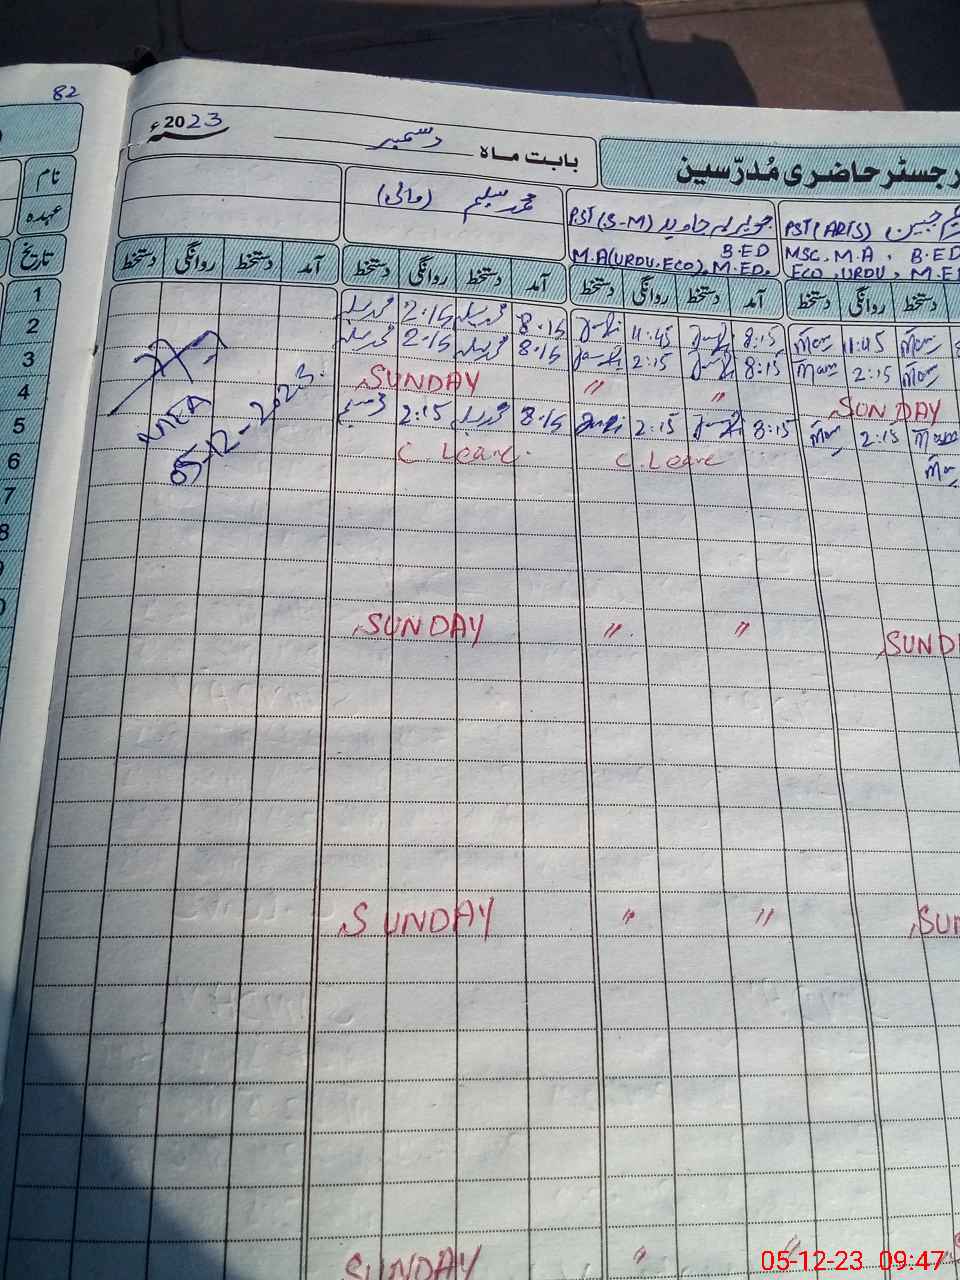 82
رجسٹر حاضری مُدرّسین
بابت ماہ دسمبر
2023ء
نام
عہدہ
تاریخ
محمد سلیم (مالی)
PST (S-M) جویریہ جاوید
B.ED
M.A(URDU, ECO), M.ED.
PST (ARTS) جبین
MSC, M.A, B.ED
ECO, URDU, M.E
آمد دستخط روانگی دستخط
آمد دستخط روانگی دستخط
آمد دستخط روانگی دستخط
دستخط روانگی دستخط
1 2:15 8:15 11:45 8:15 11:45
2 2:15 8:15 2:15 8:15 2:15
3 SUNDAY " " SUNDAY
4 2:15 8:15 2:15 8:15 2:15
5 C Leave. C. Leave
6
7
8
AMEA
05-12-2023.
SUNDAY " " SUND
SUNDAY " " SUN
SUNDAY " " S
05-12-23 09:47